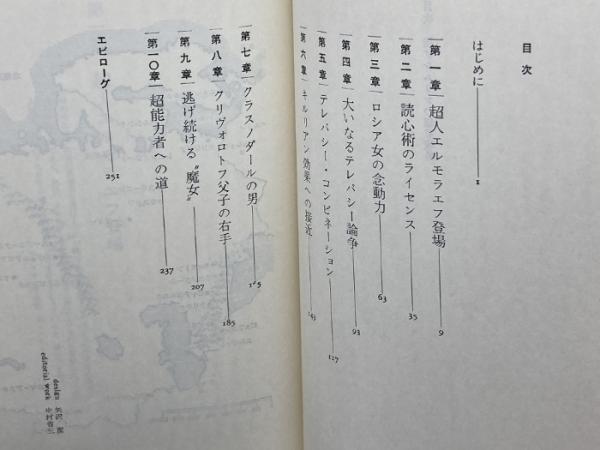 目次
はじめに 1
第一章 超人エルモラエフ登場 9
第二章 読心術のライセンス 35
第三章 ロシア女の念動力 63
第四章 大いなるテレパシー論争 93
第五章 テレパシー・コンビネーション 117
第六章 キルリアン効果への接近 143
第七章 クラスノダールの男 165
第八章 クリヴォロトフ父子の右手 185
第九章 逃げ続ける〝魔女〟 207
第一〇章 超能力者への道 237
エピローグ 251
design 矢沢 潔
editorial work 中村省三